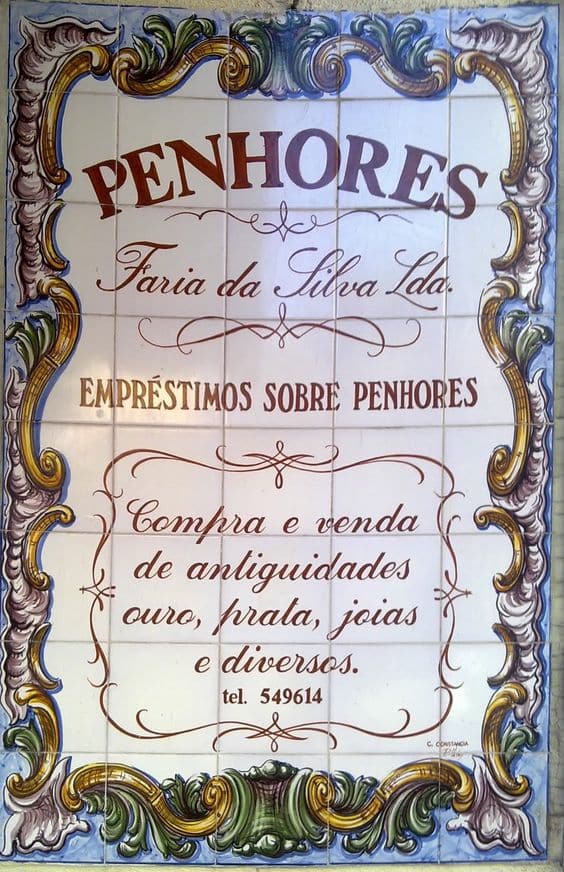 PENHORES
Faria da Silva Lda.
EMPRÉSTIMOS SOBRE PENHORES
Compra e venda
de antiguidades
ouro, prata, joias
e diversos.
tel. 549614
C. CONSTANCIA